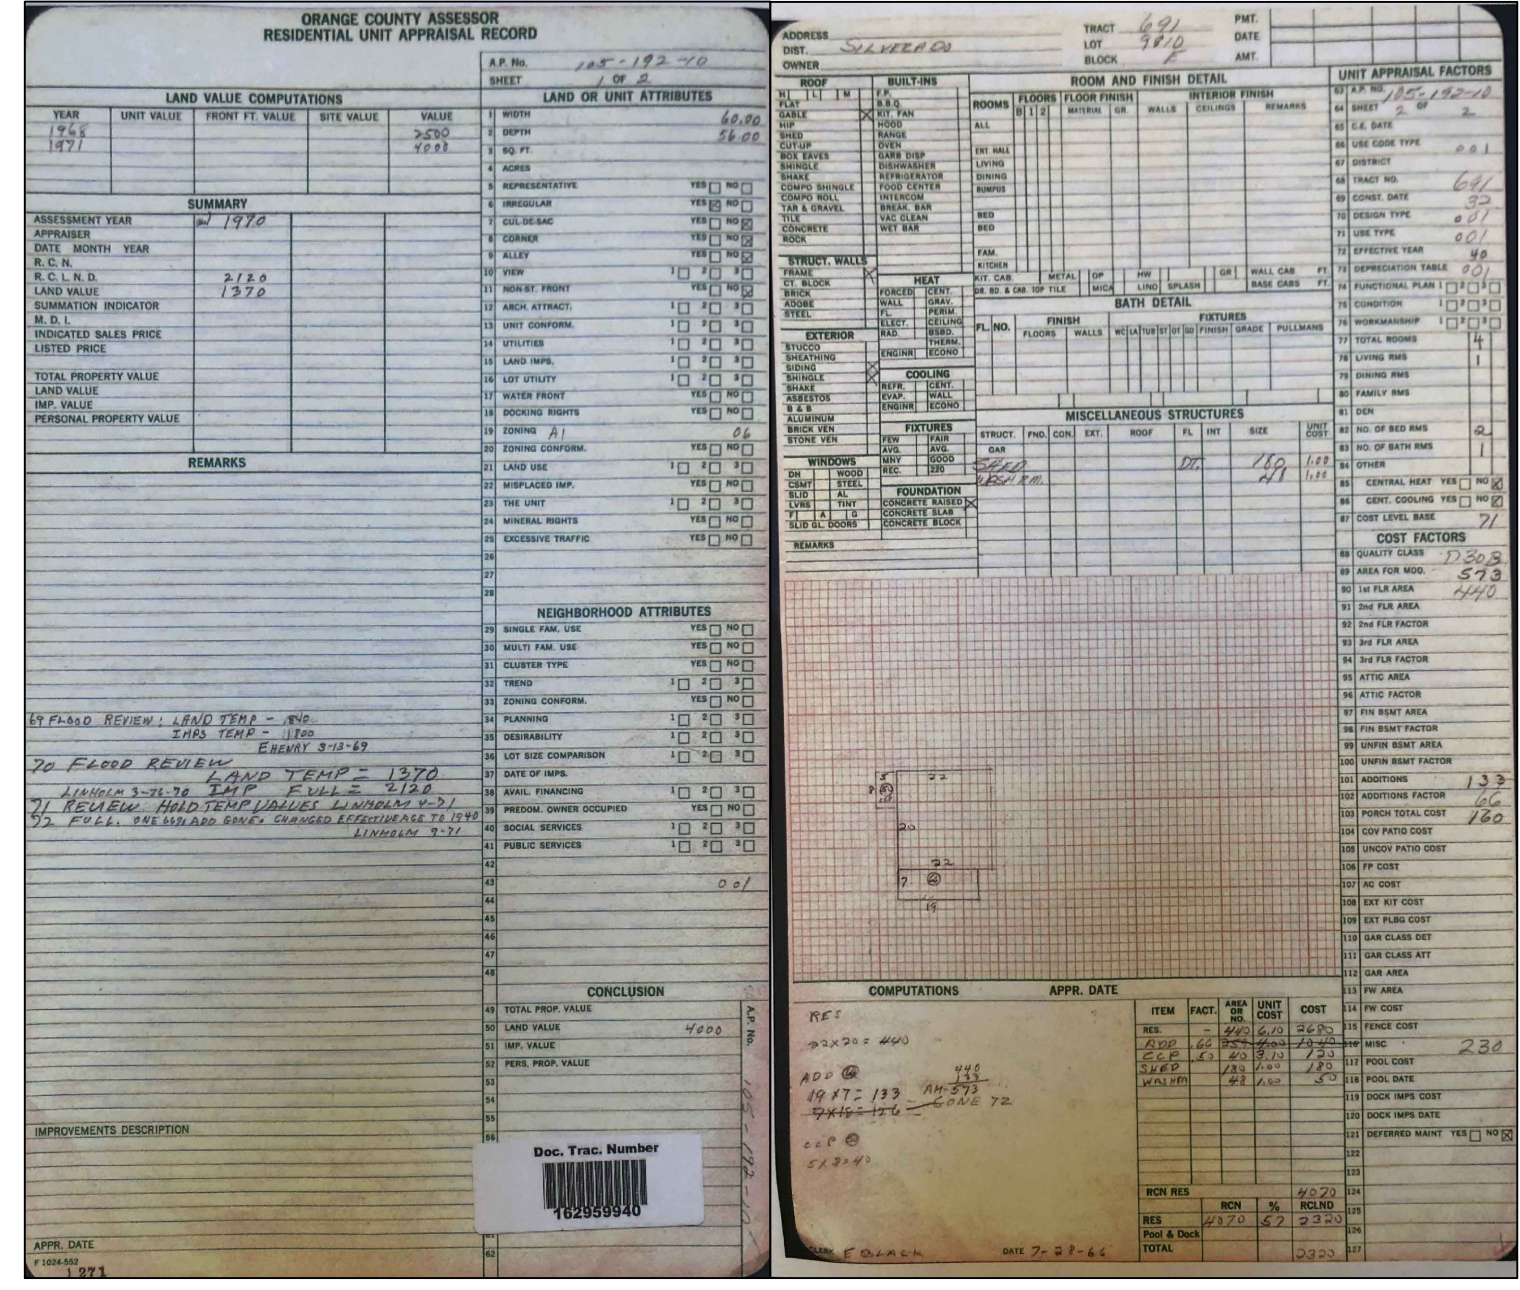 ORANGE COUNTY ASSESSOR
RESIDENTIAL UNIT APPRAISAL RECORD
A.P. No. 105-192-10
SHEET 1 OF 2
LAND VALUE COMPUTATIONS
YEAR UNIT VALUE FRONT FT. VALUE SITE VALUE VALUE
1968 2500
1971 4000
SUMMARY
ASSESSMENT YEAR 1970
APPRAISER
DATE MONTH YEAR
R. C. N.
R. C. L. N. D. 2120
LAND VALUE 1370
SUMMATION INDICATOR
M. D. I.
INDICATED SALES PRICE
LISTED PRICE
TOTAL PROPERTY VALUE
LAND VALUE
IMP. VALUE
PERSONAL PROPERTY VALUE
REMARKS
69 FLOOD REVIEW: LAND TEMP - 840
IMPS TEMP - 1800
EHENRY 3-13-69
70 FLOOD REVIEW
LAND TEMP = 1370
LINHOLM 3-26-70 IMP FULL = 2120
71 REVIEW. HOLD TEMP VALUES LINHOLM 4-71
72 FULL. ONE ADD GONE. CHANGED EFFECTIVE AGE TO 1940
LINHOLM 9-71
IMPROVEMENTS DESCRIPTION
APPR. DATE
F 1024-552
1 271
LAND OR UNIT ATTRIBUTES
1 WIDTH 60.00
2 DEPTH 56.00
3 SQ. FT.
4 ACRES
5 REPRESENTATIVE YES NO
6 IRREGULAR YES NO
7 CUL-DE-SAC YES NO
8 CORNER YES NO
9 ALLEY YES NO
10 VIEW 1 2 3
11 NON-ST. FRONT YES NO
12 ARCH. ATTRACT. 1 2 3
13 UNIT CONFORM. 1 2 3
14 UTILITIES 1 2 3
15 LAND IMPS. 1 2 3
16 LOT UTILITY 1 2 3
17 WATER FRONT YES NO
18 DOCKING RIGHTS YES NO
19 ZONING A1 06
20 ZONING CONFORM. YES NO
21 LAND USE 1 2 3
22 MISPLACED IMP. YES NO
23 THE UNIT 1 2 3
24 MINERAL RIGHTS YES NO
25 EXCESSIVE TRAFFIC YES NO
26
27
28
NEIGHBORHOOD ATTRIBUTES
29 SINGLE FAM. USE YES NO
30 MULTI FAM. USE YES NO
31 CLUSTER TYPE YES NO
32 TREND 1 2 3
33 ZONING CONFORM. YES NO
34 PLANNING 1 2 3
35 DESIRABILITY 1 2 3
36 LOT SIZE COMPARISON 1 2 3
37 DATE OF IMPS.
38 AVAIL. FINANCING 1 2 3
39 PREDOM. OWNER OCCUPIED YES NO
40 SOCIAL SERVICES 1 2 3
41 PUBLIC SERVICES 1 2 3
42
43 001
44
45
46
47
48
CONCLUSION
49 TOTAL PROP. VALUE
50 LAND VALUE 4000
51 IMP. VALUE
52 PERS. PROP. VALUE
53
54
55
56
62
A.P. No. 105-192-10
Doc. Trac. Number
162959940
ADDRESS
DIST. SILVERADO
OWNER
TRACT 691
LOT 9&10
BLOCK E
PMT.
DATE
AMT.
ROOF
H L M
FLAT
GABLE
HIP
SHED
CUT-UP
BOX EAVES
SHINGLE
SHAKE
COMPO SHINGLE
COMPO ROLL
TAR & GRAVEL
TILE
CONCRETE
ROCK
STRUCT. WALLS
FRAME
CT. BLOCK
BRICK
ADOBE
STEEL
EXTERIOR
STUCCO
SHEATHING
SIDING
SHINGLE
SHAKE
ASBESTOS
B & B
ALUMINUM
BRICK VEN
STONE VEN
WINDOWS
DH WOOD
CSMT STEEL
SLID AL
LVRS TINT
F A G
SLID GL. DOORS
REMARKS
BUILT-INS
F.P.
B.B.Q.
KIT. FAN
HOOD
RANGE
OVEN
GARB DISP
DISHWASHER
REFRIGERATOR
FOOD CENTER
INTERCOM
BREAK. BAR
VAC CLEAN
WET BAR
HEAT
FORCED CENT.
WALL GRAV.
FL. PERIM.
ELECT. CEILING
RAD. BSBD.
THERM.
ENGINR ECONO
COOLING
REFR. CENT.
EVAP. WALL
ENGINR ECONO
FIXTURES
FEW FAIR
AVG. AVG.
MNY GOOD
REC. 220
FOUNDATION
CONCRETE RAISED
CONCRETE SLAB
CONCRETE BLOCK
ROOM AND FINISH DETAIL
ROOMS FLOORS FLOOR FINISH INTERIOR FINISH
B 1 2 MATERIAL GR. WALLS CEILINGS REMARKS
ALL
ENT. HALL
LIVING
DINING
RUMPUS
BED
BED
FAM.
KITCHEN
KIT. CAB. METAL OP HW GR WALL CAB FT.
DR. BD. & CAB. TOP TILE MICA LINO SPLASH BASE CABS FT.
BATH DETAIL
FL. NO. FINISH FIXTURES
FLOORS WALLS WC LA TUB ST OT GD FINISH GRADE PULLMANS
MISCELLANEOUS STRUCTURES
STRUCT. FND. CON. EXT. ROOF FL INT SIZE UNIT COST
GAR
SHED DT. 180 1.00
WASH RM. 48 1.00
5 22
8
20
22
7
19
COMPUTATIONS APPR. DATE
RES
22X20 = 440
440
133
ADD
19X7 = 133 AM-573
7X18 = 126 - GONE 72
CCP
5X8=40
ITEM FACT. AREA OR NO. UNIT COST COST
RES. - 440 6.10 2680
ADD .66 259 4.00 1040
CCP .50 40 3.10 120
SHED 180 1.00 180
WASHRM 48 1.00 50
RCN RES 4070
RCN % RCLND
RES 4070 57 2320
Pool & Dock
TOTAL 2320
CLERK E BLACK DATE 7-28-66
UNIT APPRAISAL FACTORS
63 A.P. NO. 105-192-10
64 SHEET 2 OF 2
65 C.E. DATE
66 USE CODE TYPE 001
67 DISTRICT
68 TRACT NO. 691
69 CONST. DATE 32
70 DESIGN TYPE 001
71 USE TYPE 001
72 EFFECTIVE YEAR 40
73 DEPRECIATION TABLE 001
74 FUNCTIONAL PLAN 1 2 3
75 CONDITION 1 2 3
76 WORKMANSHIP 1 2 3
77 TOTAL ROOMS 4
78 LIVING RMS 1
79 DINING RMS
80 FAMILY RMS
81 DEN
82 NO. OF BED RMS 2
83 NO. OF BATH RMS 1
84 OTHER
85 CENTRAL HEAT YES NO
86 CENT. COOLING YES NO
87 COST LEVEL BASE 71
COST FACTORS
88 QUALITY CLASS D30B
89 AREA FOR MOD. 573
90 1st FLR AREA 440
91 2nd FLR AREA
92 2nd FLR FACTOR
93 3rd FLR AREA
94 3rd FLR FACTOR
95 ATTIC AREA
96 ATTIC FACTOR
97 FIN BSMT AREA
98 FIN BSMT FACTOR
99 UNFIN BSMT AREA
100 UNFIN BSMT FACTOR
101 ADDITIONS 133
102 ADDITIONS FACTOR 66
103 PORCH TOTAL COST 160
104 COV PATIO COST
105 UNCOV PATIO COST
106 FP COST
107 AC COST
108 EXT KIT COST
109 EXT PLBG COST
110 GAR CLASS DET
111 GAR CLASS ATT
112 GAR AREA
113 FW AREA
114 FW COST
115 FENCE COST
116 MISC 230
117 POOL COST
118 POOL DATE
119 DOCK IMPS COST
120 DOCK IMPS DATE
121 DEFERRED MAINT YES NO
122
123
124
125
126
127